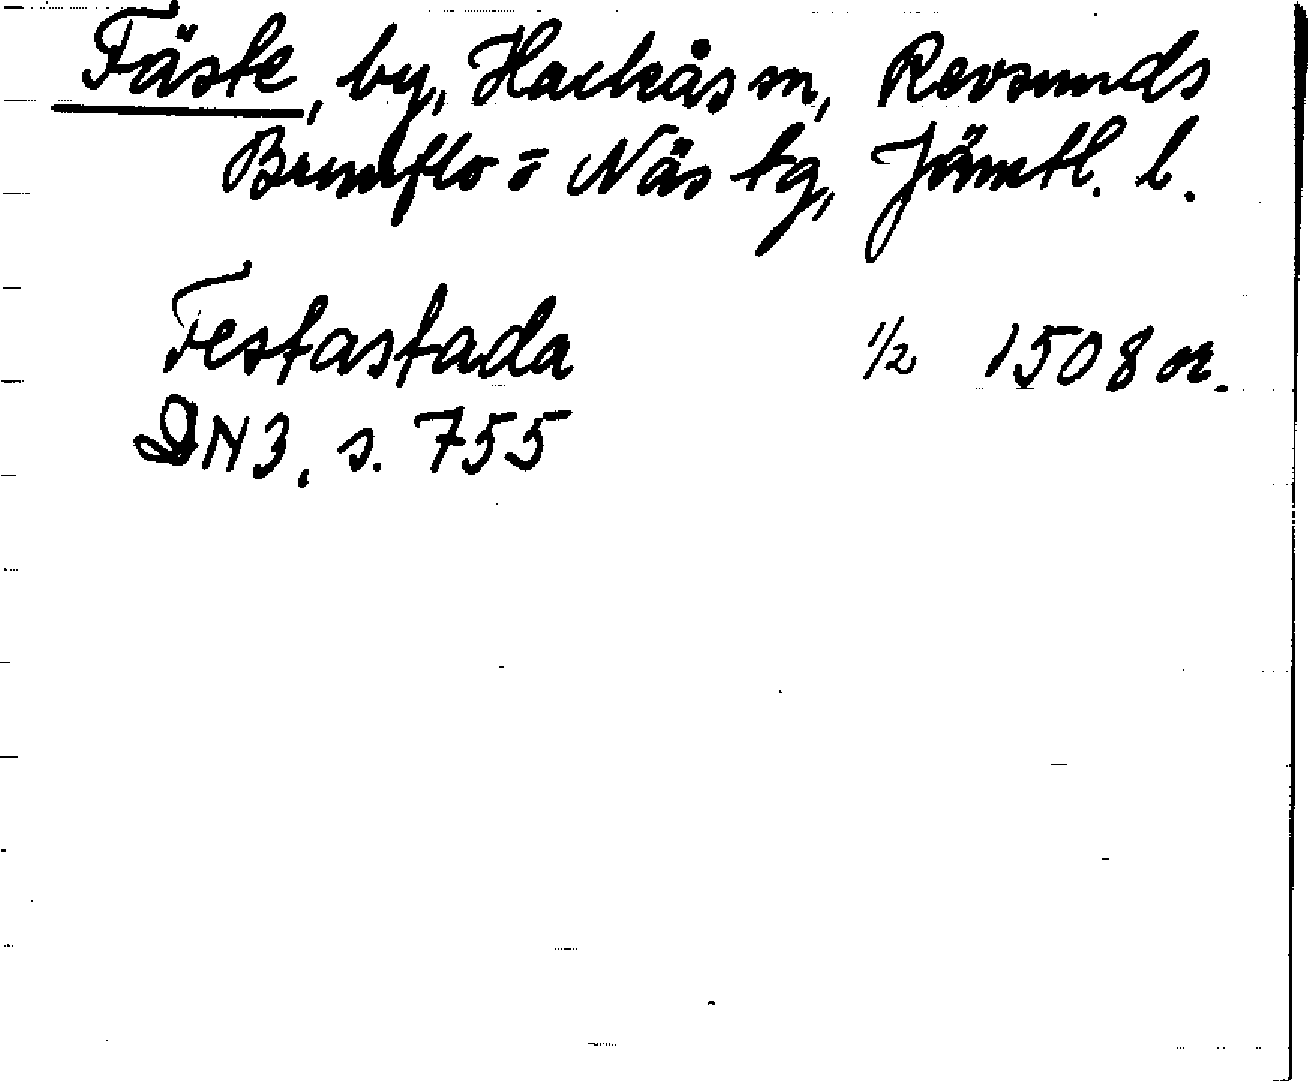 Fäste, by, Hackås sn, Revsunds
Brunflo o Näs tg, Jämtl. l.
Festastada 1/2 1508 or.
DN3, s. 755